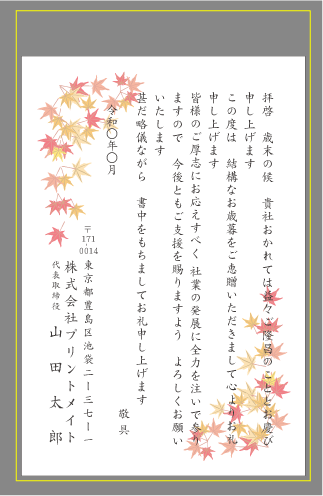 拝啓　歳末の候　貴社おかれては益々ご隆昌のこととお慶び
申し上げます
この度は　結構なお歳暮をご恵贈いただきまして心よりお礼
申し上げます
皆様のご厚志にお応えすべく 社業の発展に全力を注いで参り
ますので　今後ともご支援を賜りますよう　よろしくお願い
いたします
甚だ略儀ながら　書中をもちましてお礼申し上げます
敬具
令和〇年〇月
〒171-0014
東京都豊島区池袋二ー三七ー一
株式会社プリントメイト
代表取締役
山田太郎